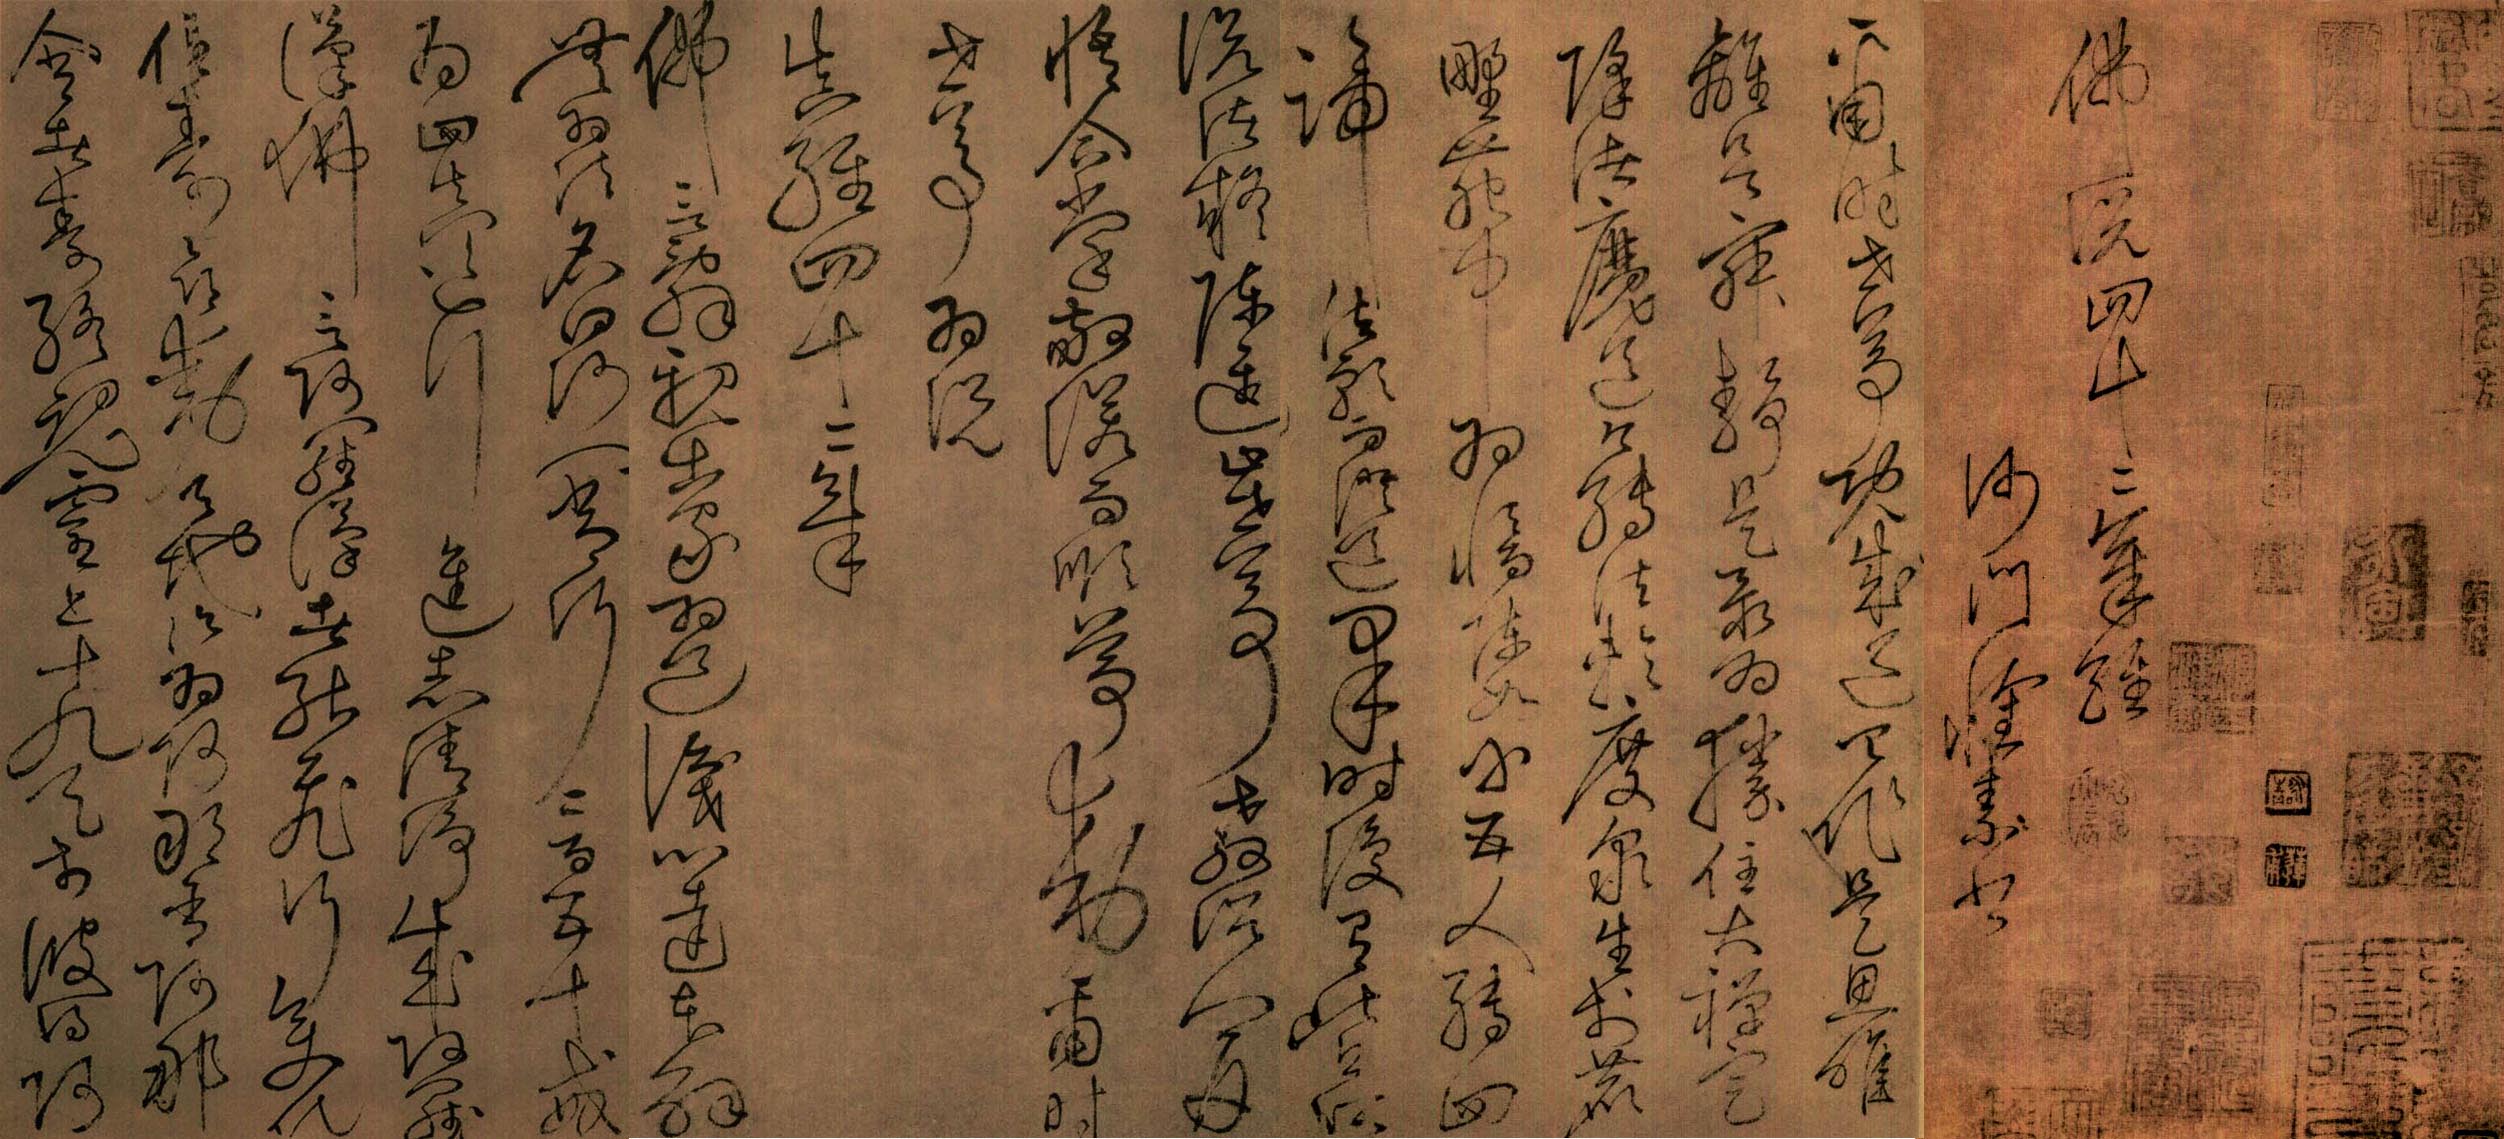 佛說四十二章經
沙門懷素書
爾時世尊既成道已作是思惟
離欲寂靜是最為勝住大禪定
降諸魔道已轉法輪度眾生於鹿
野苑中為憍陳如等五人轉四
諦法輪而證道果時復有比丘所
說諸疑陳進止世尊教詔一一開
悟合掌敬諾而順尊敕爾時
世尊為說
真經四十二章
佛言辭親出家為道識心達本解
無為法名曰沙門常行二百五十戒
為四真道行進志清淨成阿羅
漢佛言阿羅漢者能飛行變化
住壽命動天地次為阿那含阿那
含者壽終魂靈上十九天於彼得阿